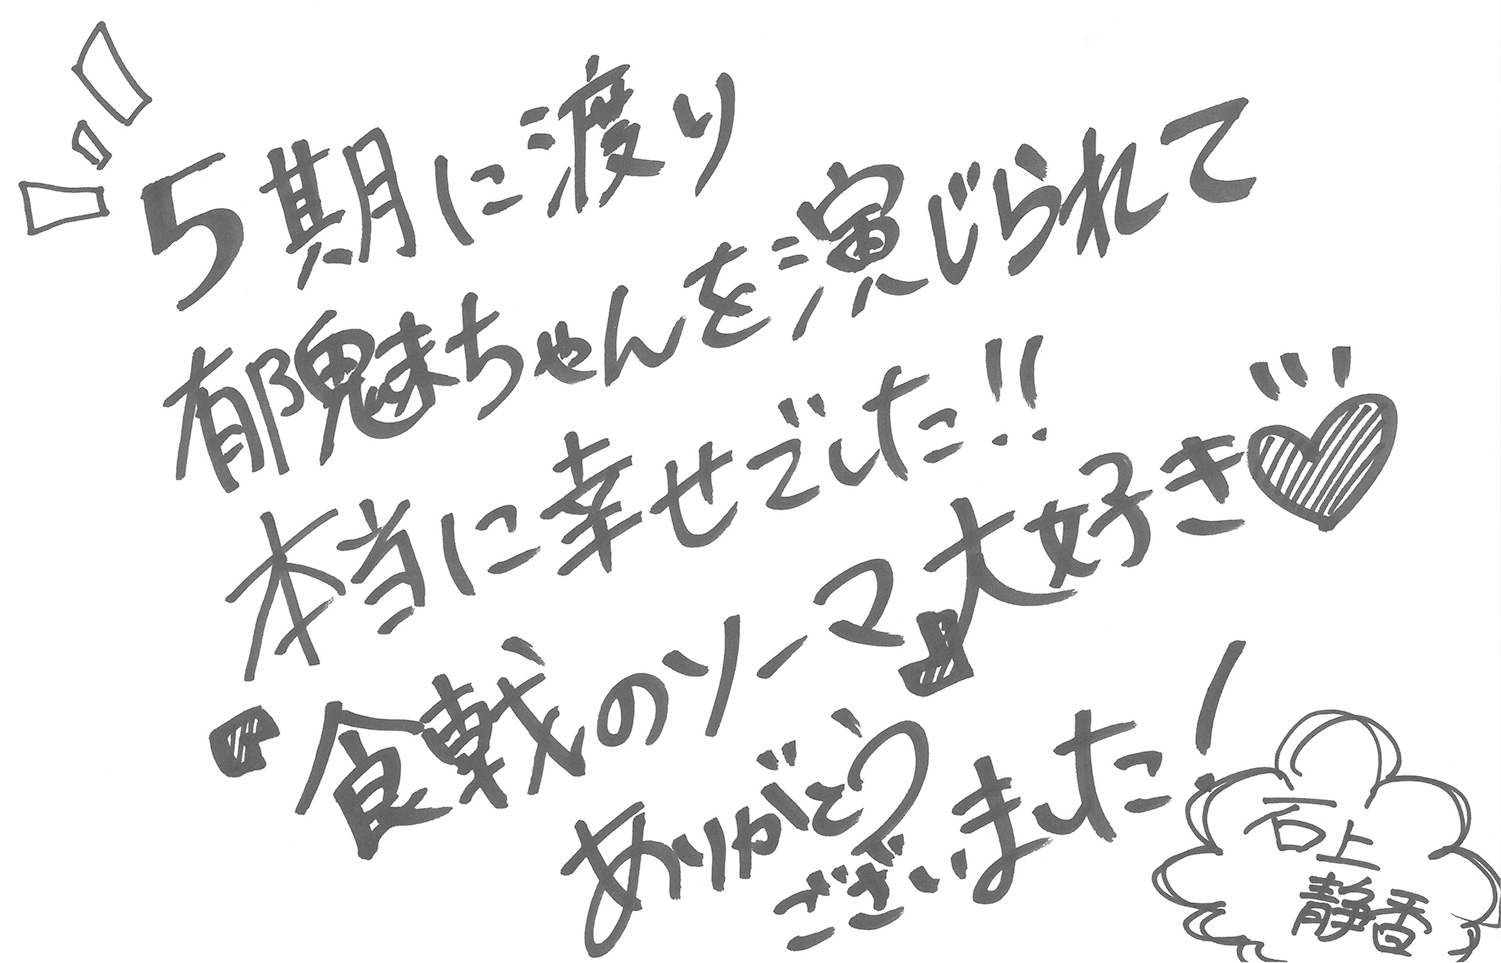 5期に渡り
郁魅ちゃんを演じられて
本当に幸せでした!!
『食戟のソーマ』大好き♥
ありがとう
ございました!
石上
静香